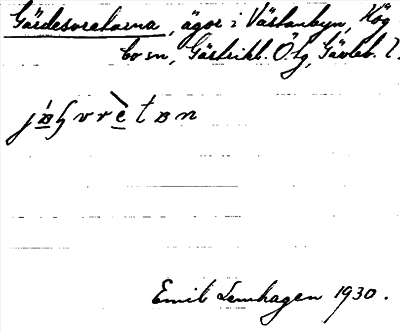 Gärdesvretarna, ägor i Västanbyn, Hög
bo sn, Gästrikl. Ö. tg, Gävleb. l.
Emil Lennhagen 1930.